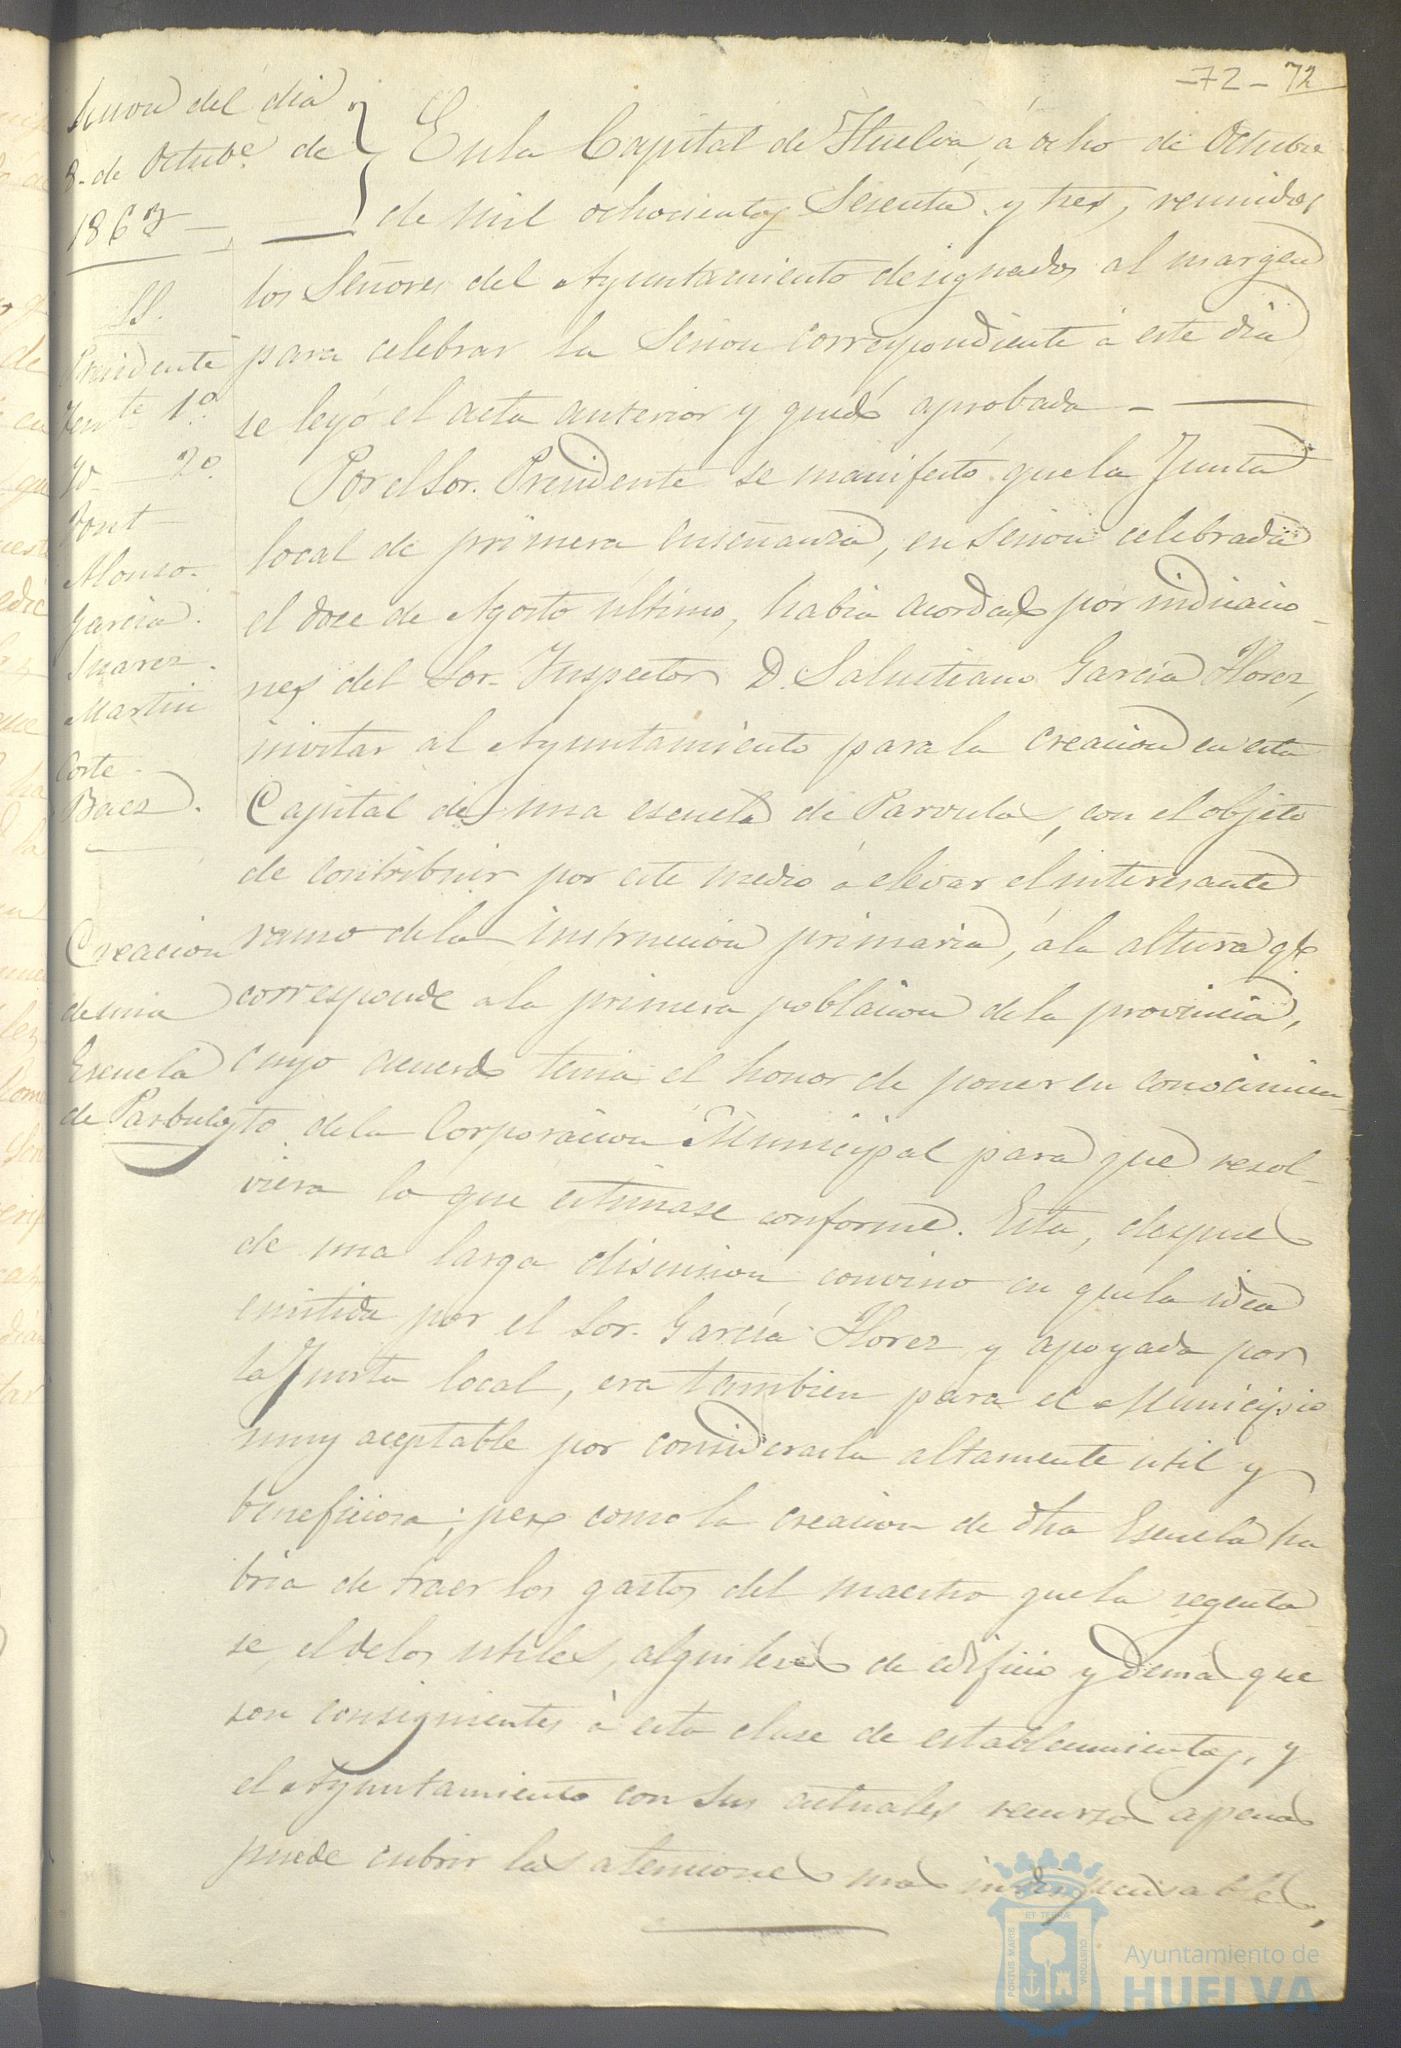 -72- 72
Sesion del dia
8 de Octube. de
1863
SS.
Presidente
Tente 1º
Yd 2º
Font
Alonso
Garcia
Suarez
Martin
Corte
Baez
Creacion
de una
Escuela
de Parbulos
En la Capital de Huelva, á ocho de Octubre
de mil ochocientos Sesenta y tres, reunidos
los Señores del Ayuntamiento designados al margen
para celebrar la Sesion correspondiente á este dia
se leyó el acta anterior y quedó aprobada
Por el Sor. Presidente se manifestó que la Junta
local de primera enseñanza, en sesion celebrada
el doce de Agosto último, habia acordado por indicacio-
nes del Sor. Inspector D. Salustiano García Florez,
invitar al Ayuntamiento para la creacion en esta
Capital de una escuela de Parvulos, con el objeto
de contribuir por este medio á elevar el interesante
ramo de la instruccion primaria, á la altura qe.
corresponde a la primera poblacion de la provincia,
cuyo acuerdo tenia el honor de poner en conocimien-
to de la Corporacion Municipal para que resol-
viera lo que estimase conforme. Esta, despues
de una larga discusion convino en que la idea
emitida por el Sor. García Florez y apoyada por
la Junta local, era tambien para el Municipio
muy aceptable por considerarla altamente util y
beneficiosa; pero como la creacion de dha Escuela ha
bria de traer los gastos del maestro que la regenta
se, el de los utiles, alquileres de edificio y demas que
son consiguientes á esta clase de establecimientos, y
el Ayuntamiento con sus actuales recursos apenas
puede cubrir las atenciones mas indispensables,
PORTUS MARIS
ET TERRÆ
CUSTODIA
Ayuntamiento de
HUELVA